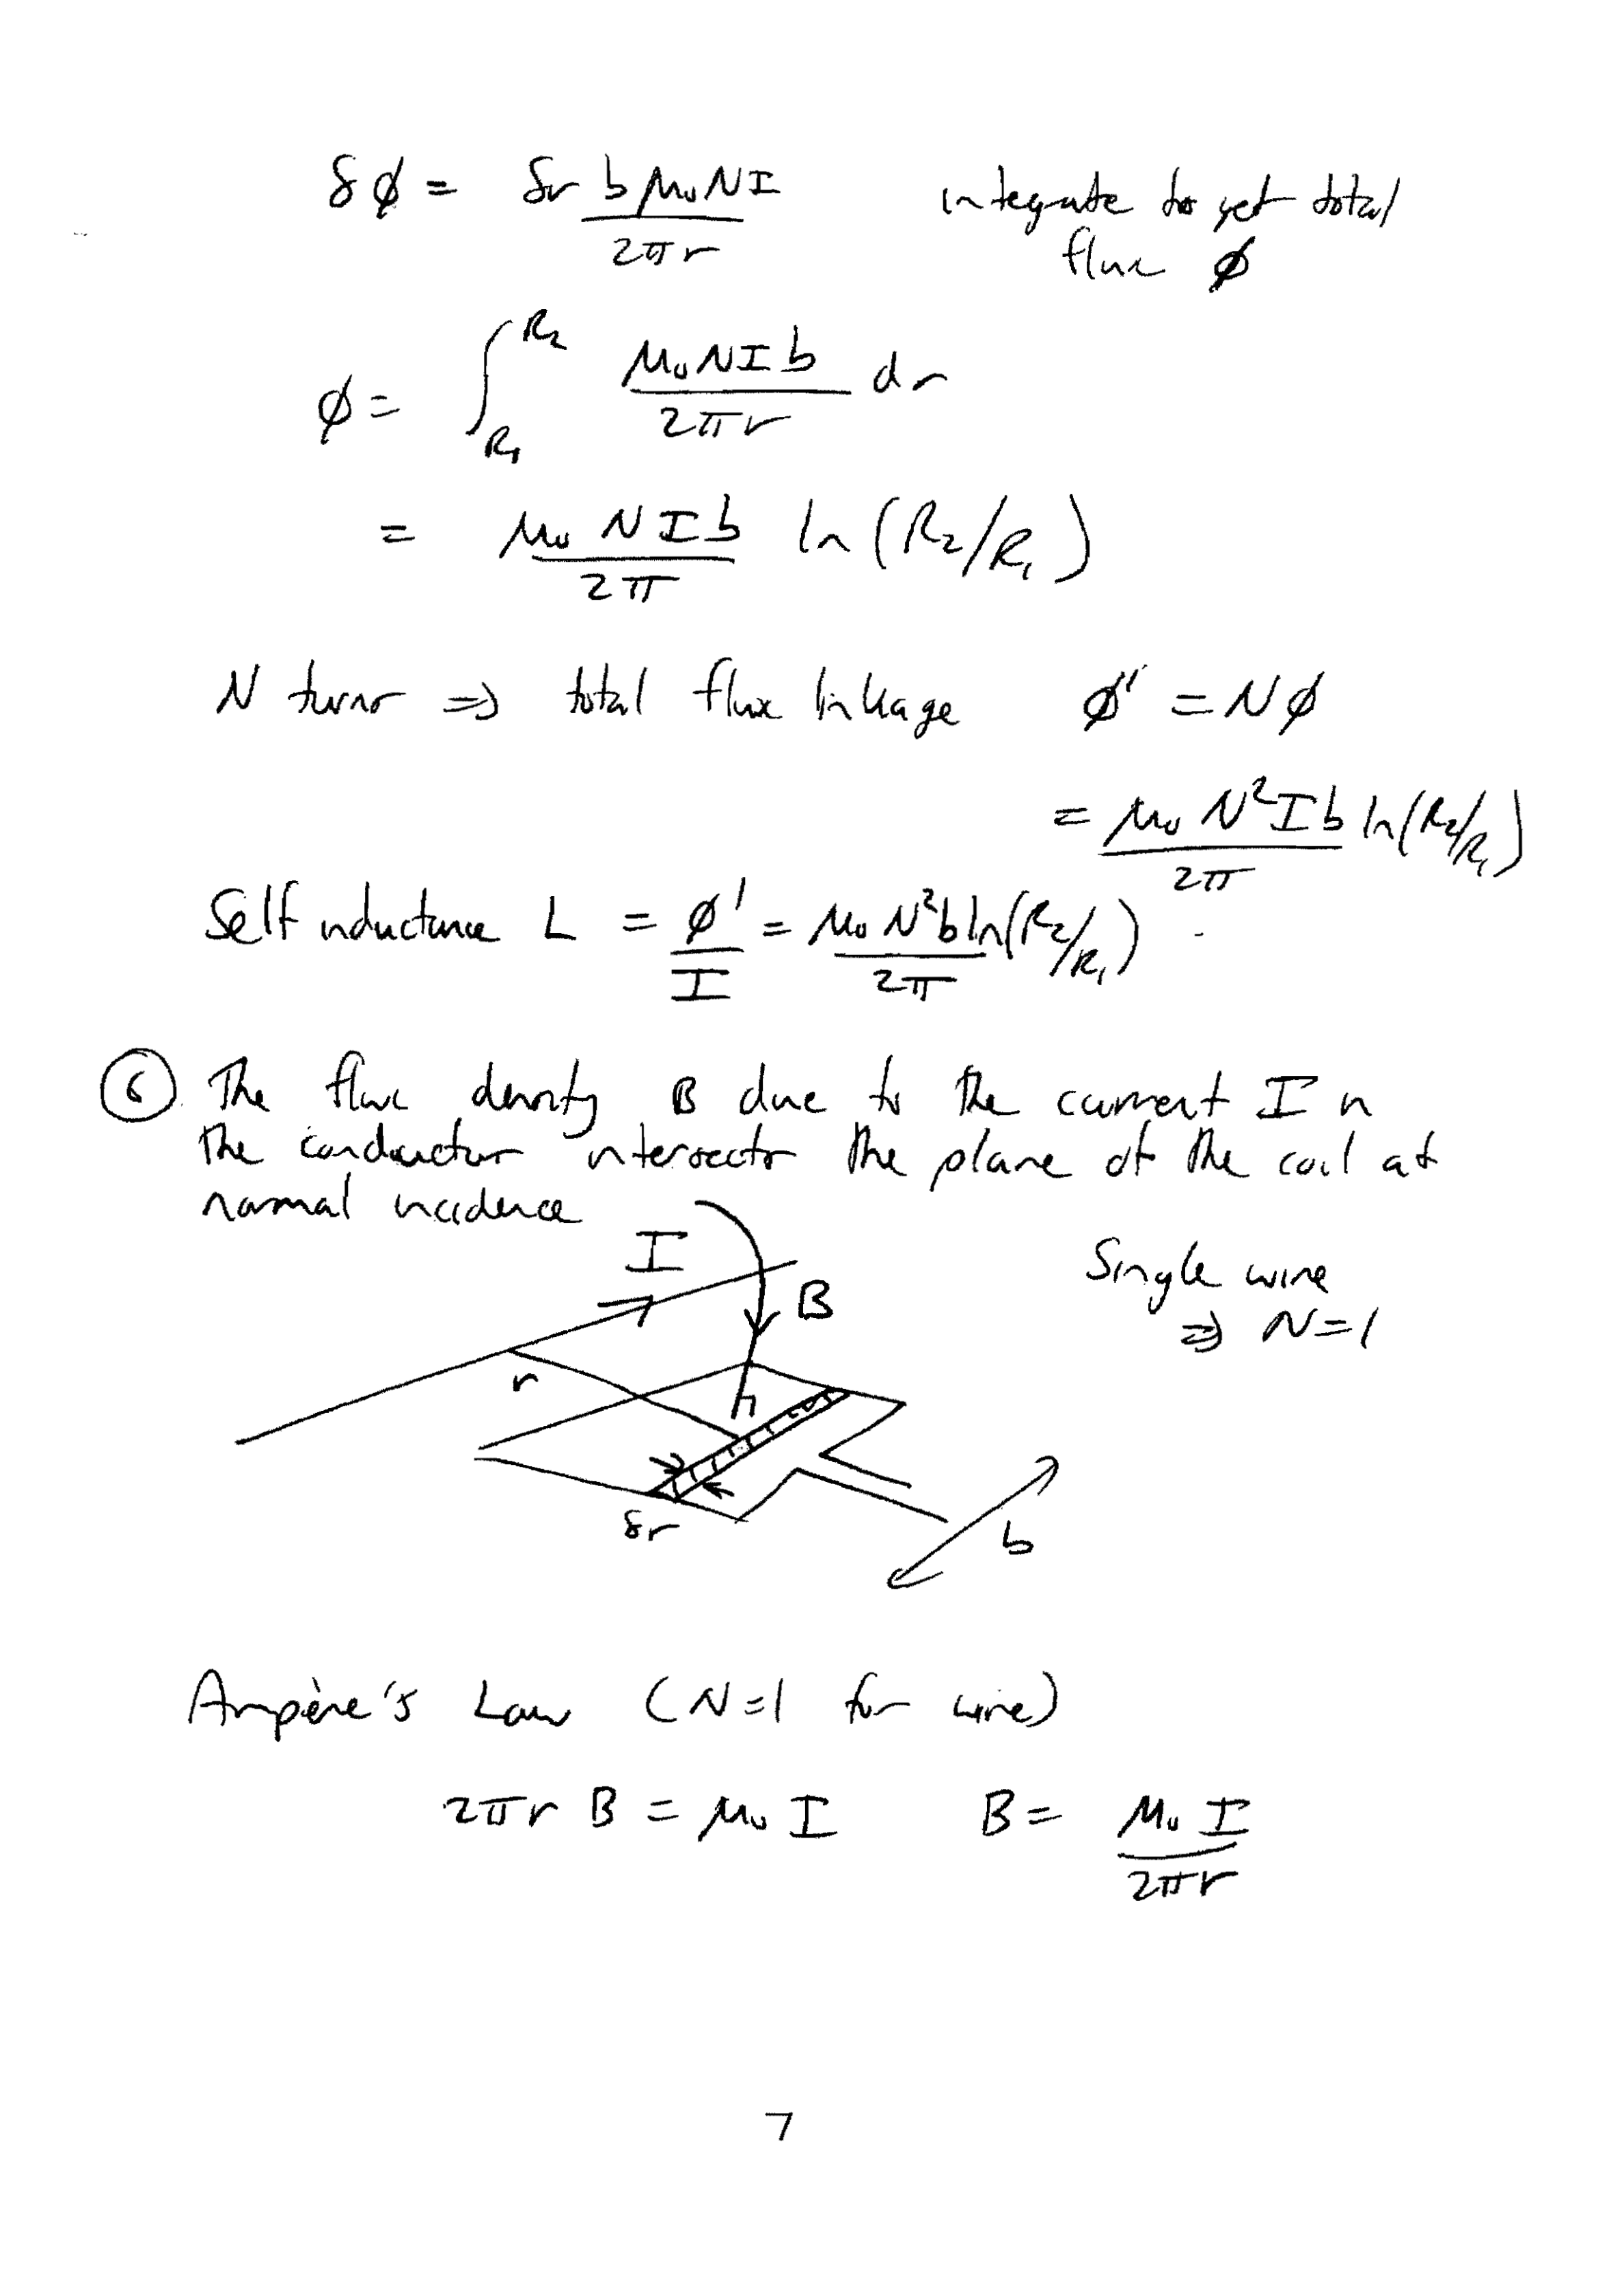 δφ = δr b μ₀NI / 2πr integrate to get total
flux φ
φ = ∫_{R₁}^{R₂} μ₀NIb / 2πr dr
= μ₀ N I b / 2π ln(R₂/R₁)
N turns ⇒ total flux linkage φ' = Nφ
= μ₀ N²Ib / 2π ln(R₂/R₁)
Self inductance L = φ' / I = μ₀ N²b ln(R₂/R₁) / 2π
⑥ The flux density B due to the current I in
the conductor intersects the plane of the coil at
normal incidence
I
B
Single wire
⇒ N=1
r
δr
b
Ampère's Law (N=1 for wire)
2πr B = μ₀ I B = μ₀ I / 2πr
7